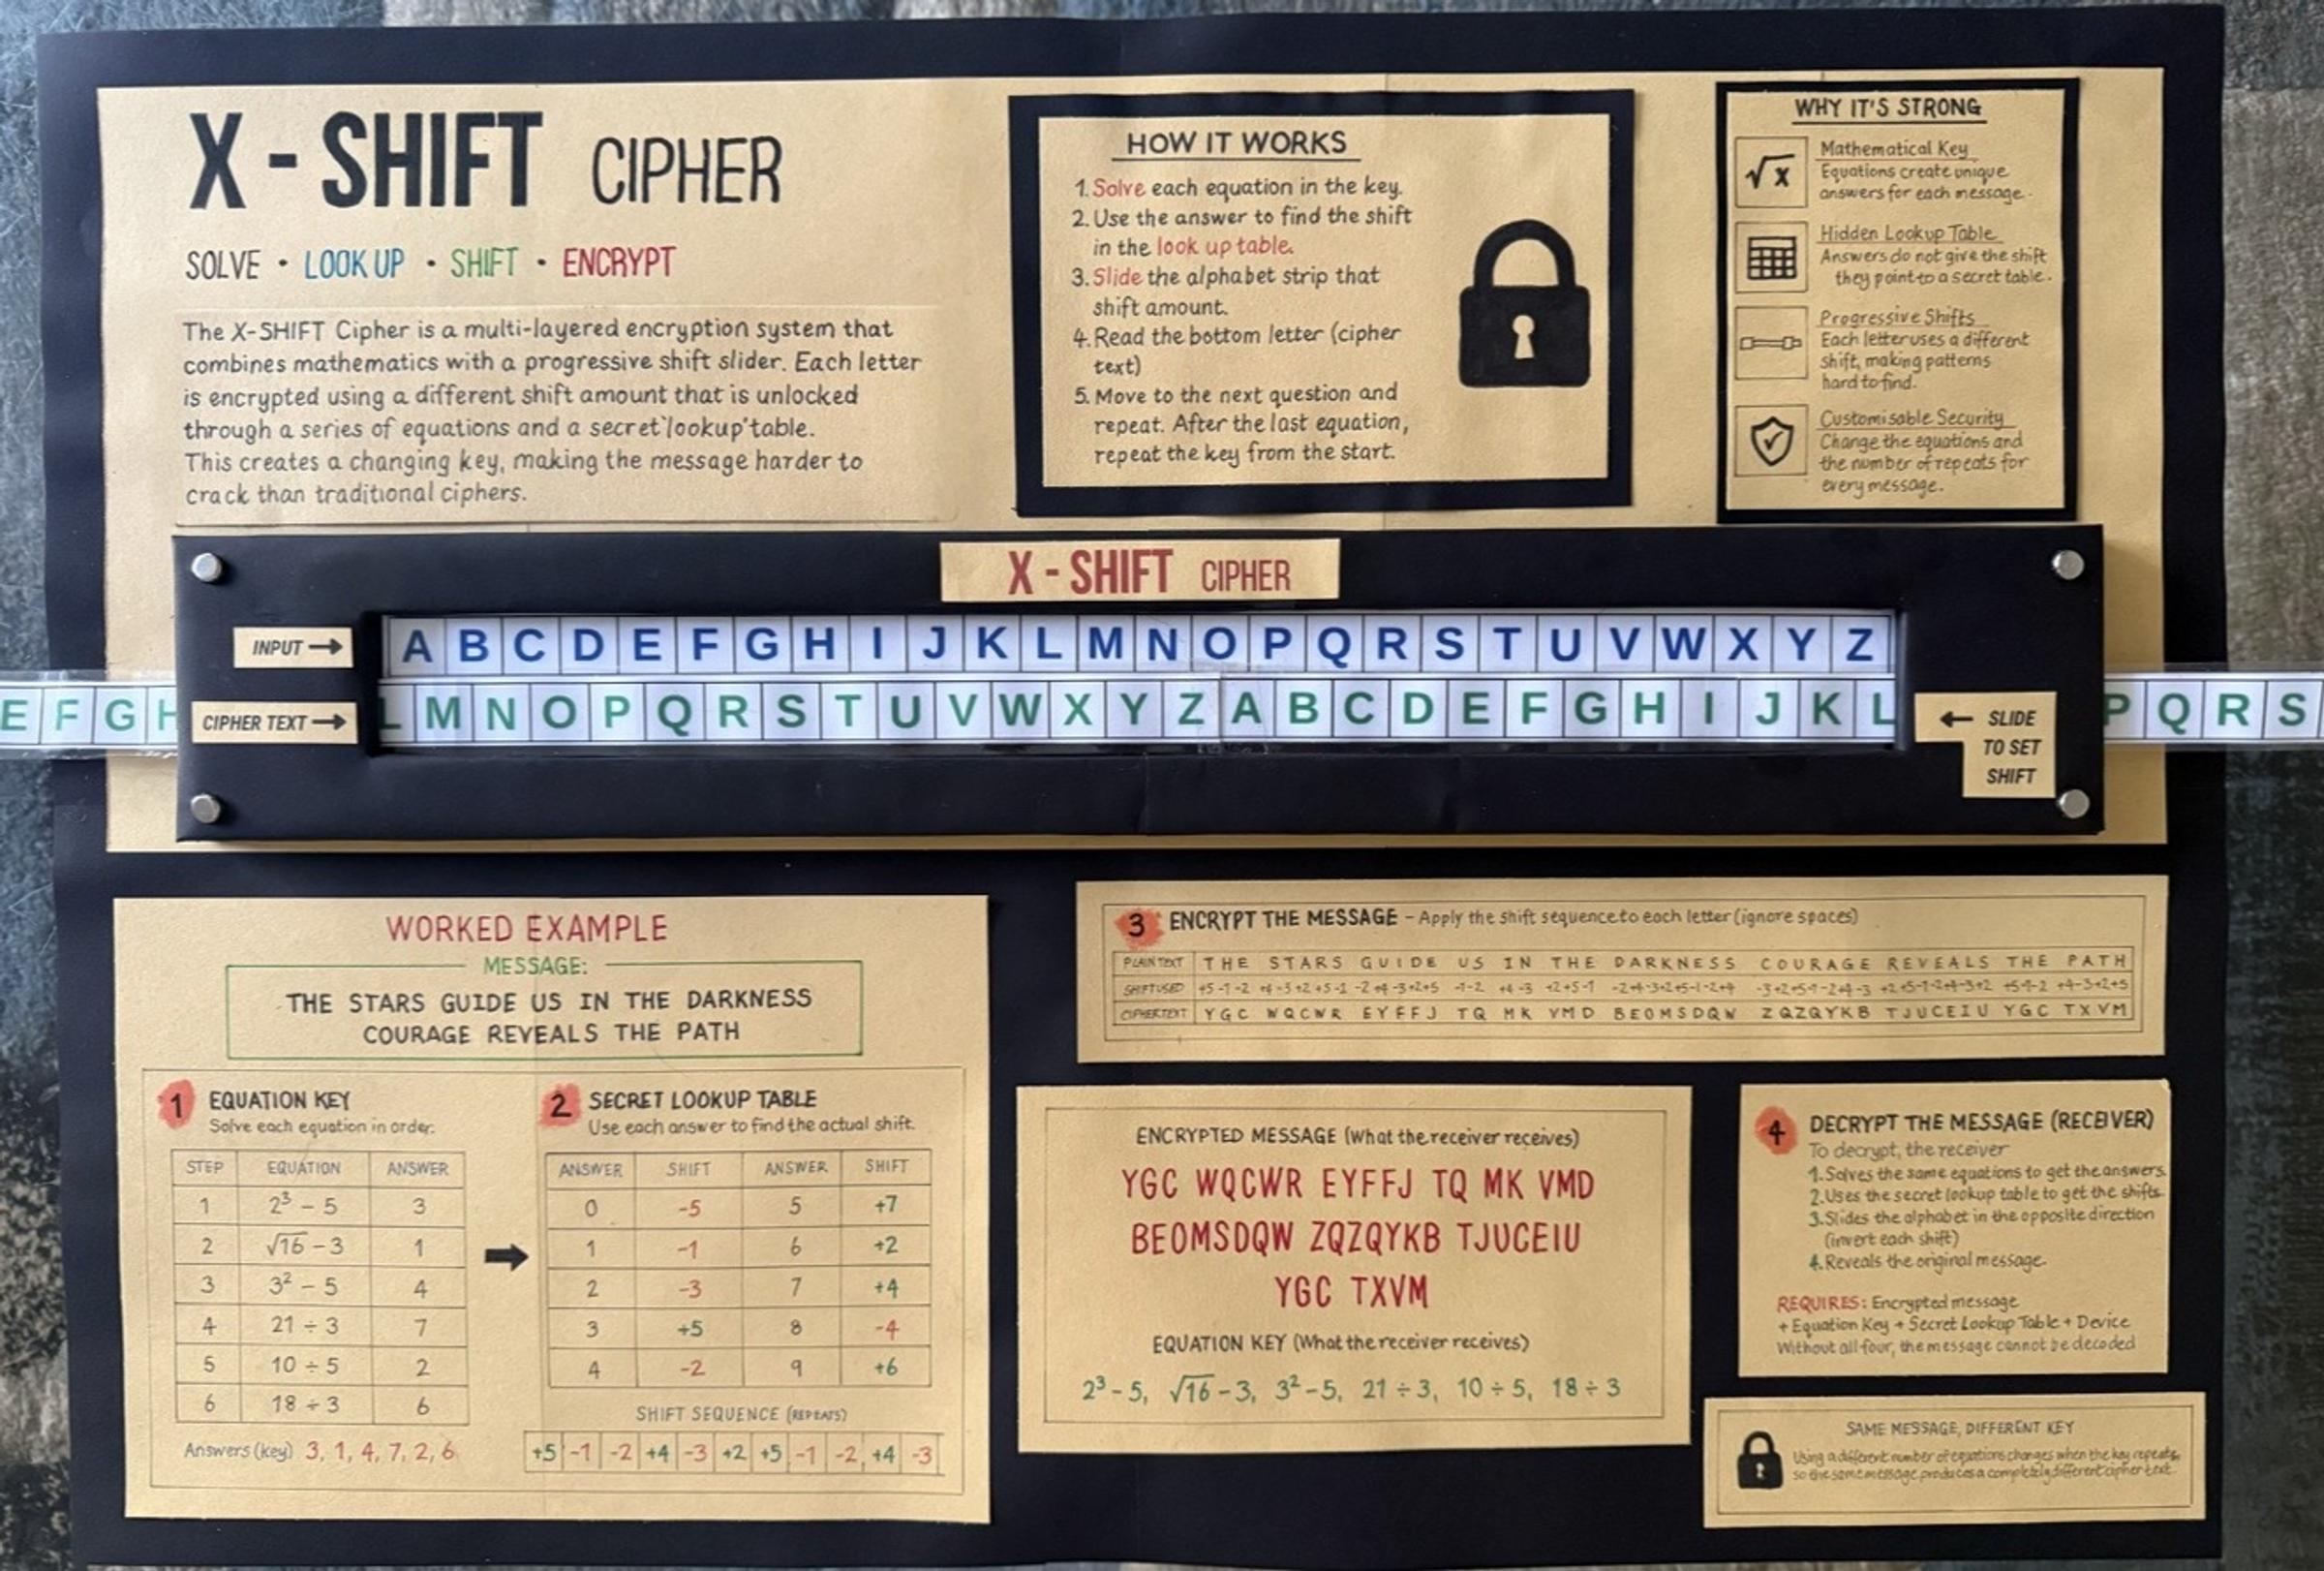 X - SHIFT CIPHER
SOLVE • LOOK UP • SHIFT • ENCRYPT
The X-SHIFT Cipher is a multi-layered encryption system that
combines mathematics with a progressive shift slider. Each letter
is encrypted using a different shift amount that is unlocked
through a series of equations and a secret 'lookup' table.
This creates a changing key, making the message harder to
crack than traditional ciphers.
HOW IT WORKS
1. Solve each equation in the key.
2. Use the answer to find the shift
in the look up table.
3. Slide the alphabet strip that
shift amount.
4. Read the bottom letter (cipher
text)
5. Move to the next question and
repeat. After the last equation,
repeat the key from the start.
WHY IT'S STRONG
√x
Mathematical Key
Equations create unique
answers for each message.
Hidden Lookup Table
Answers do not give the shift
they point to a secret table.
Progressive Shifts
Each letter uses a different
shift, making patterns
hard to find.
Customisable Security
Change the equations and
the number of repeats for
every message.
X - SHIFT CIPHER
INPUT →
A B C D E F G H I J K L M N O P Q R S T U V W X Y Z
E F G H
CIPHER TEXT →
L M N O P Q R S T U V W X Y Z A B C D E F G H I J K L
← SLIDE
TO SET
SHIFT
P Q R S
WORKED EXAMPLE
MESSAGE:
THE STARS GUIDE US IN THE DARKNESS
COURAGE REVEALS THE PATH
1 EQUATION KEY
Solve each equation in order.
STEP EQUATION ANSWER
1 2³ – 5 3
2 √16 – 3 1
3 3² – 5 4
4 21 ÷ 3 7
5 10 ÷ 5 2
6 18 ÷ 3 6
Answers (key) 3, 1, 4, 7, 2, 6
2 SECRET LOOKUP TABLE
Use each answer to find the actual shift.
ANSWER SHIFT ANSWER SHIFT
0 -5 5 +7
1 -1 6 +2
2 -3 7 +4
3 +5 8 -4
4 -2 9 +6
SHIFT SEQUENCE (REPEATS)
+5 -1 -2 +4 -3 +2 +5 -1 -2 +4 -3
3 ENCRYPT THE MESSAGE – Apply the shift sequence to each letter (ignore spaces)
PLAINTEXT THE STARS GUIDE US IN THE DARKNESS COURAGE REVEALS THE PATH
SHIFT USED +5-1-2 +4-3+2+5-1 -2+4-3+2+5 -1-2 +4-3 +2+5-1 -2+4-3+2+5-1-2+4 -3+2+5-1-2+4-3 +2+5-1-2+4-3+2 +5-1-2 +4-3+2+5
CIPHERTEXT YGC WQCWR EYFFJ TQ MK VMD BEOMSDQW ZQZQYKB TJUCEIU YGC TXVM
ENCRYPTED MESSAGE (What the receiver receives)
YGC WQCWR EYFFJ TQ MK VMD
BEOMSDQW ZQZQYKB TJUCEIU
YGC TXVM
EQUATION KEY (What the receiver receives)
2³ – 5, √16 – 3, 3² – 5, 21 ÷ 3, 10 ÷ 5, 18 ÷ 3
4 DECRYPT THE MESSAGE (RECEIVER)
To decrypt, the receiver
1. Solves the same equations to get the answers.
2. Uses the secret lookup table to get the shifts.
3. Slides the alphabet in the opposite direction
(invert each shift)
4. Reveals the original message.
REQUIRES: Encrypted message
+ Equation Key + Secret Lookup Table + Device
Without all four, the message cannot be decoded
SAME MESSAGE, DIFFERENT KEY
Using a different number of equations changes when the key repeats,
so the same message produces a completely different cipher text.